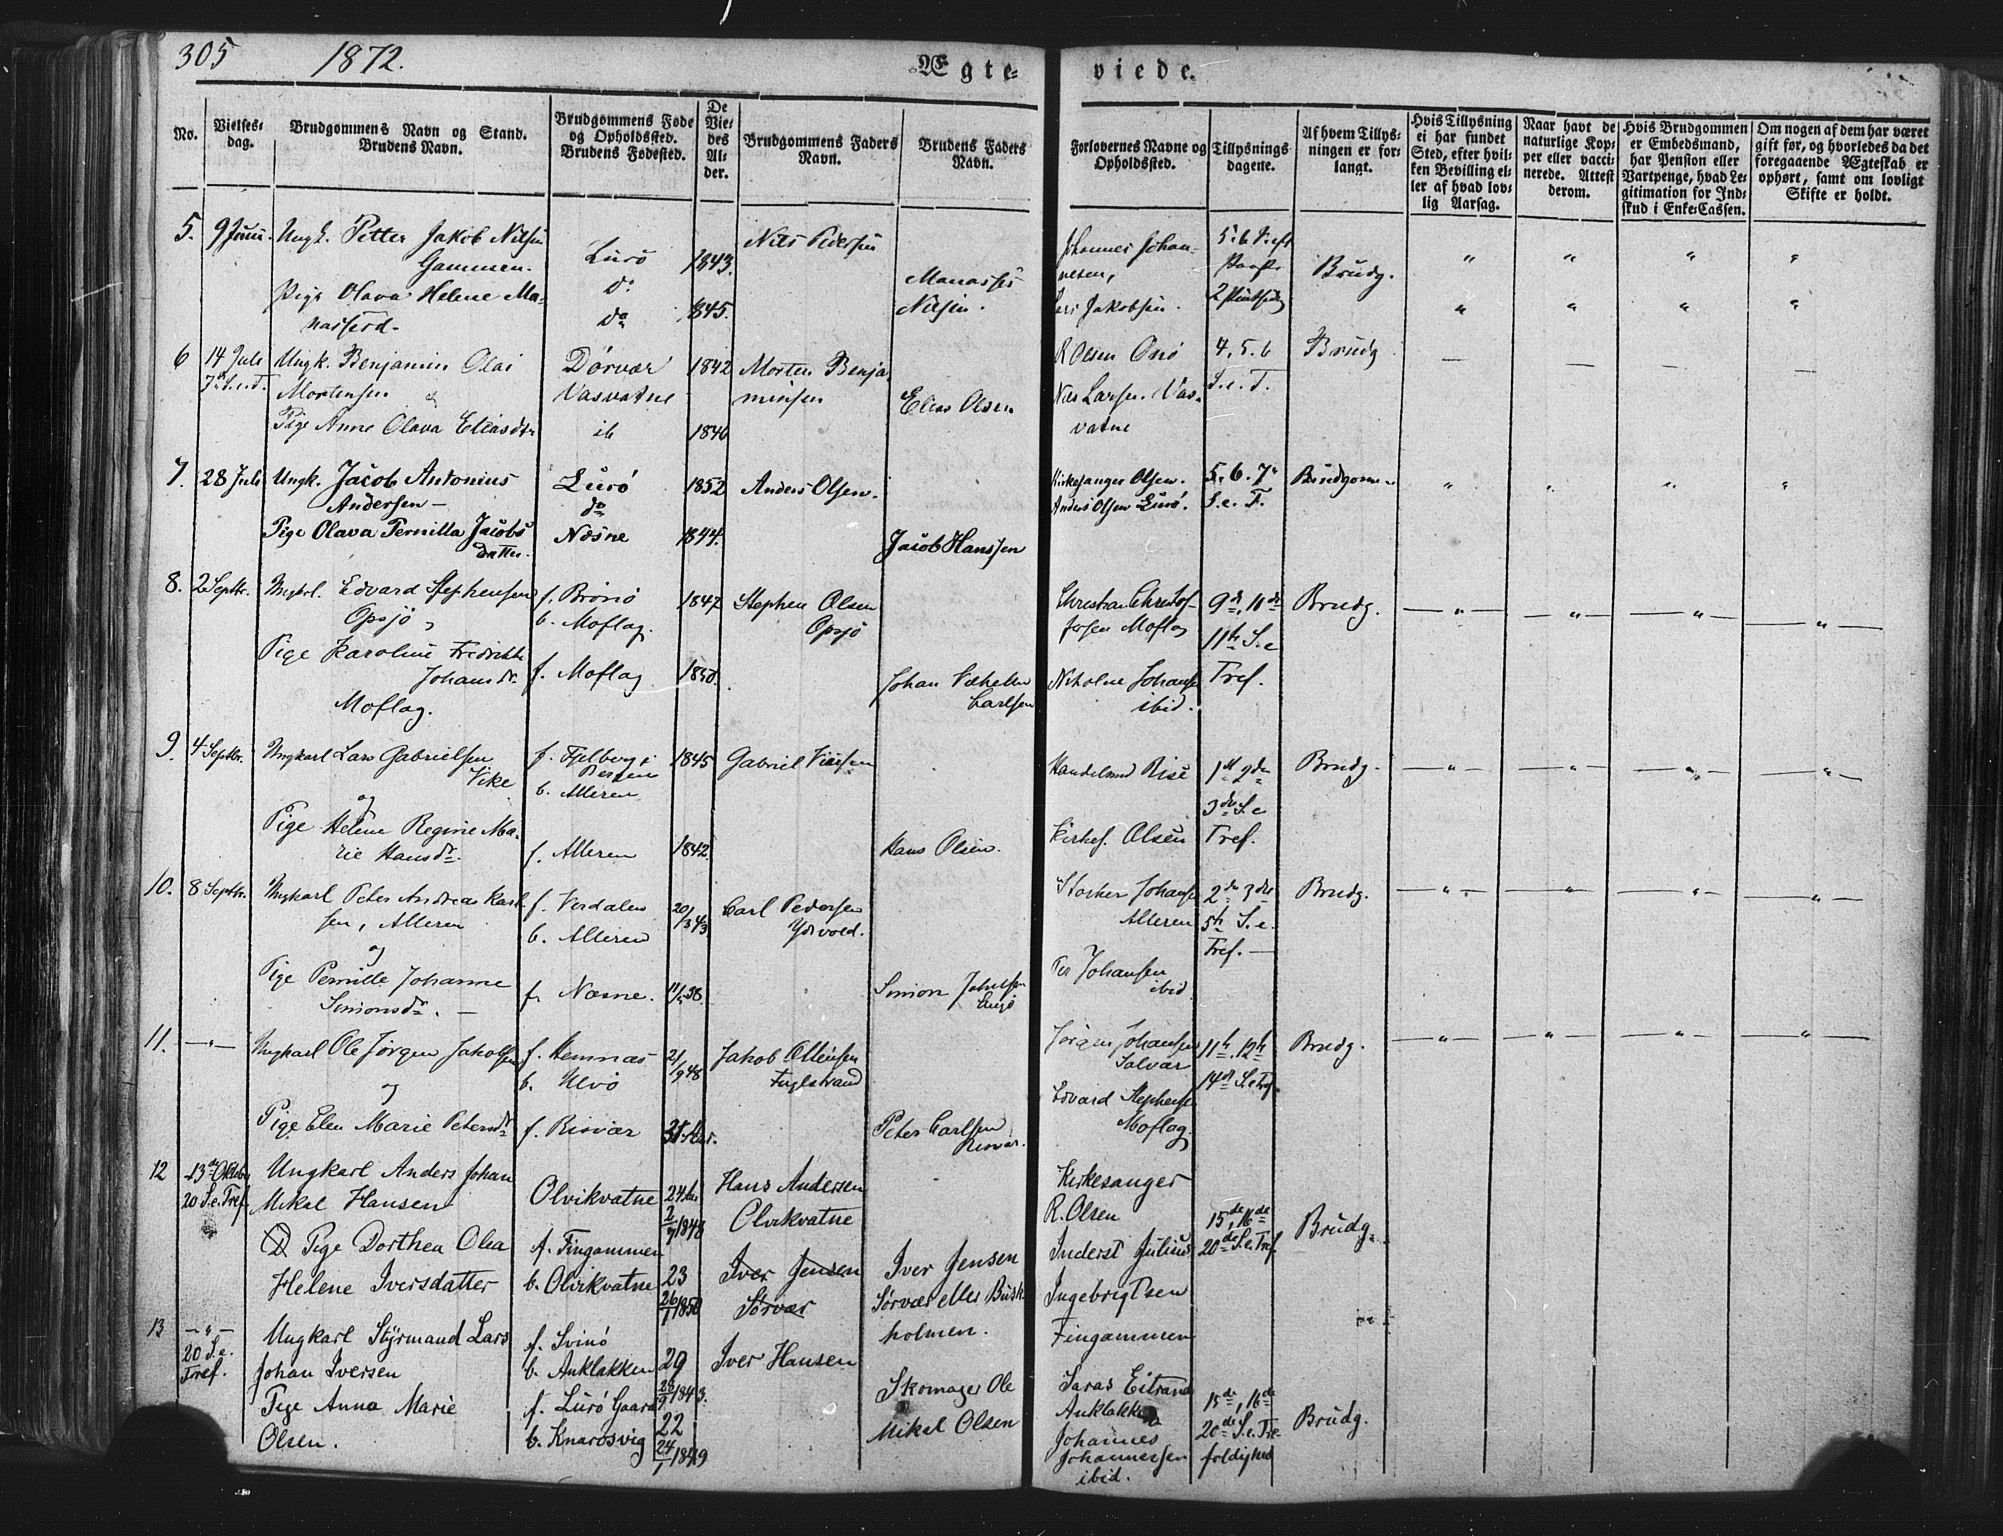 305 1872. Ægteviede.
No.
Vielsesdag.
Brudgommens Navn og Stand.
Brudens Navn.
Brudgommens Føde og Opholdssted.
Brudens Fødested.
De Viedes Alder.
Brudgommens Faders Navn.
Brudens Faders Navn.
Forlovernes Navne og Opholdssted.
Tillysningsdagene.
Af hvem Tillysningen er forlangt.
Hvis Tillysning ei har fundet Sted, efter hvilken Bevilling eller af hvad lovlig Aarsag.
Naar havt de naturlige Kopper eller vaccinerede. Attest derom.
Hvis Brudgommen er Embedsmand, har Pension eller Vartpenge, hvad Legitimation for Indskud i Enke-Cassen.
Om nogen af dem har været gift før, og hvorledes da det foregaaende Ægteskab er ophørt, samt om lovligt Skifte er holdt.
5. 9 Juni. Ungk. Petter Jakob Nilsen
Gammen.
Lurö 1843. Nils Pedersen
Johannes Johannesen,
5. 6 S. eft Paaske
2 Pintsedag
Brudg.
Pige Olava Helene Manassesd.
do 1845.
Manasses Nilsen.
Lars Jakobsen.
6 14 Juli 7de S.e.T.
Ungk. Benjamin Olai
Mortensen &
Dørvær
Vasvatne
1842 Morten Benjaminsen
R Olsen Onö
4. 5. 6 S. e. T.
Brudg
Pige Anne Olava Eliasdtr
ib 1846
Elias Olsen
Nils Larsen Vasvatne
7. 28 Juli Ungk. Jacob Antonius
Andersen —
Lurö
do
1852 Anders Olsen.
Kirkesanger Olsen.
Anders Olsen Lurö.
5. 6. 7de
S. e. T.
Brudgom
Pige Olava Pernilla Jacobsdatter.
Næsne 1844.
Jacob Hanssen
8. 2 Septbr. Ungkrl. Edvard Stephensen
Opsjö,
f. Brönö
b. Moflag.
1847 Stephen Olsen
Opsjö
Christian Christoffersen Moflag
9de, 10de
11te S. e
Tref.
Brudg.
Pige Karoline Fredrikke
Johansdr.
Moflag.
f. Moflag 1850.
Johan Vilhelm
Carlsen
Nikolai Johansen
ibid.
9. 4 Septbr. Ungkarl Lars Gabrielsen
Vike
og
f. Fjelberg i
Bergen
b. Alleren
1845 Gabriel
Handelsmd Rise
1ste 2den
3de S. e
Tref.
Brudg.
Pige Helene Regine Marie Hansdr.
f. Alleren 1842
Hans Olsen.
Kirkes. Olsen
10. 8 Septbr. Ungkarl Peter Andreas Karlsen, Alleren
og
f. Verdalen
b. Alleren
20/3 43 Carl Pedersen
Ydsvold.
Johansen
Alleren
2den 3die
5te S. e.
Tref. —
Brudg.
Pige Pernille Johanne
Simonsdr. —
f. Næsne. 38.
Simon
Per Johansen
ibid
11. —"— Ungkarl Ole Jørgen Jakobsen
og
f. Hemnæs
b. Ulvö
21/9 48 Jakob Ottensen
Fuglstrand
Jørgen Johansen
Solvær
11te. 12te
14de S.e Tref.
Brudg.
Pige Elen Marie Petersdr
f. Risvær 31 Aar.
Peter Carlsen
Risvær.
Edvard Stephensen
Moflag
12 13de Oktbr
20 S.e.Tref.
Ungkarl Anders Johan
Mikal Hansen
Olvikvatne 24 Aar
2/7 1848
Hans Andersen
Olvikvatne
Kirkesanger
R. Olsen
15de, 16de
20de S.e.Tref
Brudg.
Pige Dorthea Olea
Helene Iversdatter
f. Fingammen
b. Olvikvatne
23
26/1 1850
Iver Jensen
Sørvær
Iver Jensen
Sørvær eller Buskholmen.
Inderst Julius
Ingebrigtsen
Fingammen
13 —"—
20 S.e.
Tref.
Ungkarl Styrmand Lars
Johan Iversen
f. Svinö
b. Anklakken
29
23/9 1843.
Iver Hansen
Saras Eitrand
Anklakken
15de, 16de
20de S.e. Tre-
foldighed
Brudg.
Pige Anna Marie
Olsen.
f. Lurö Gaard
b. Knarosvig
22
24/1 1849
Skomager Ole
Mikal Olsen
Johannes
Johannessen
ibid.